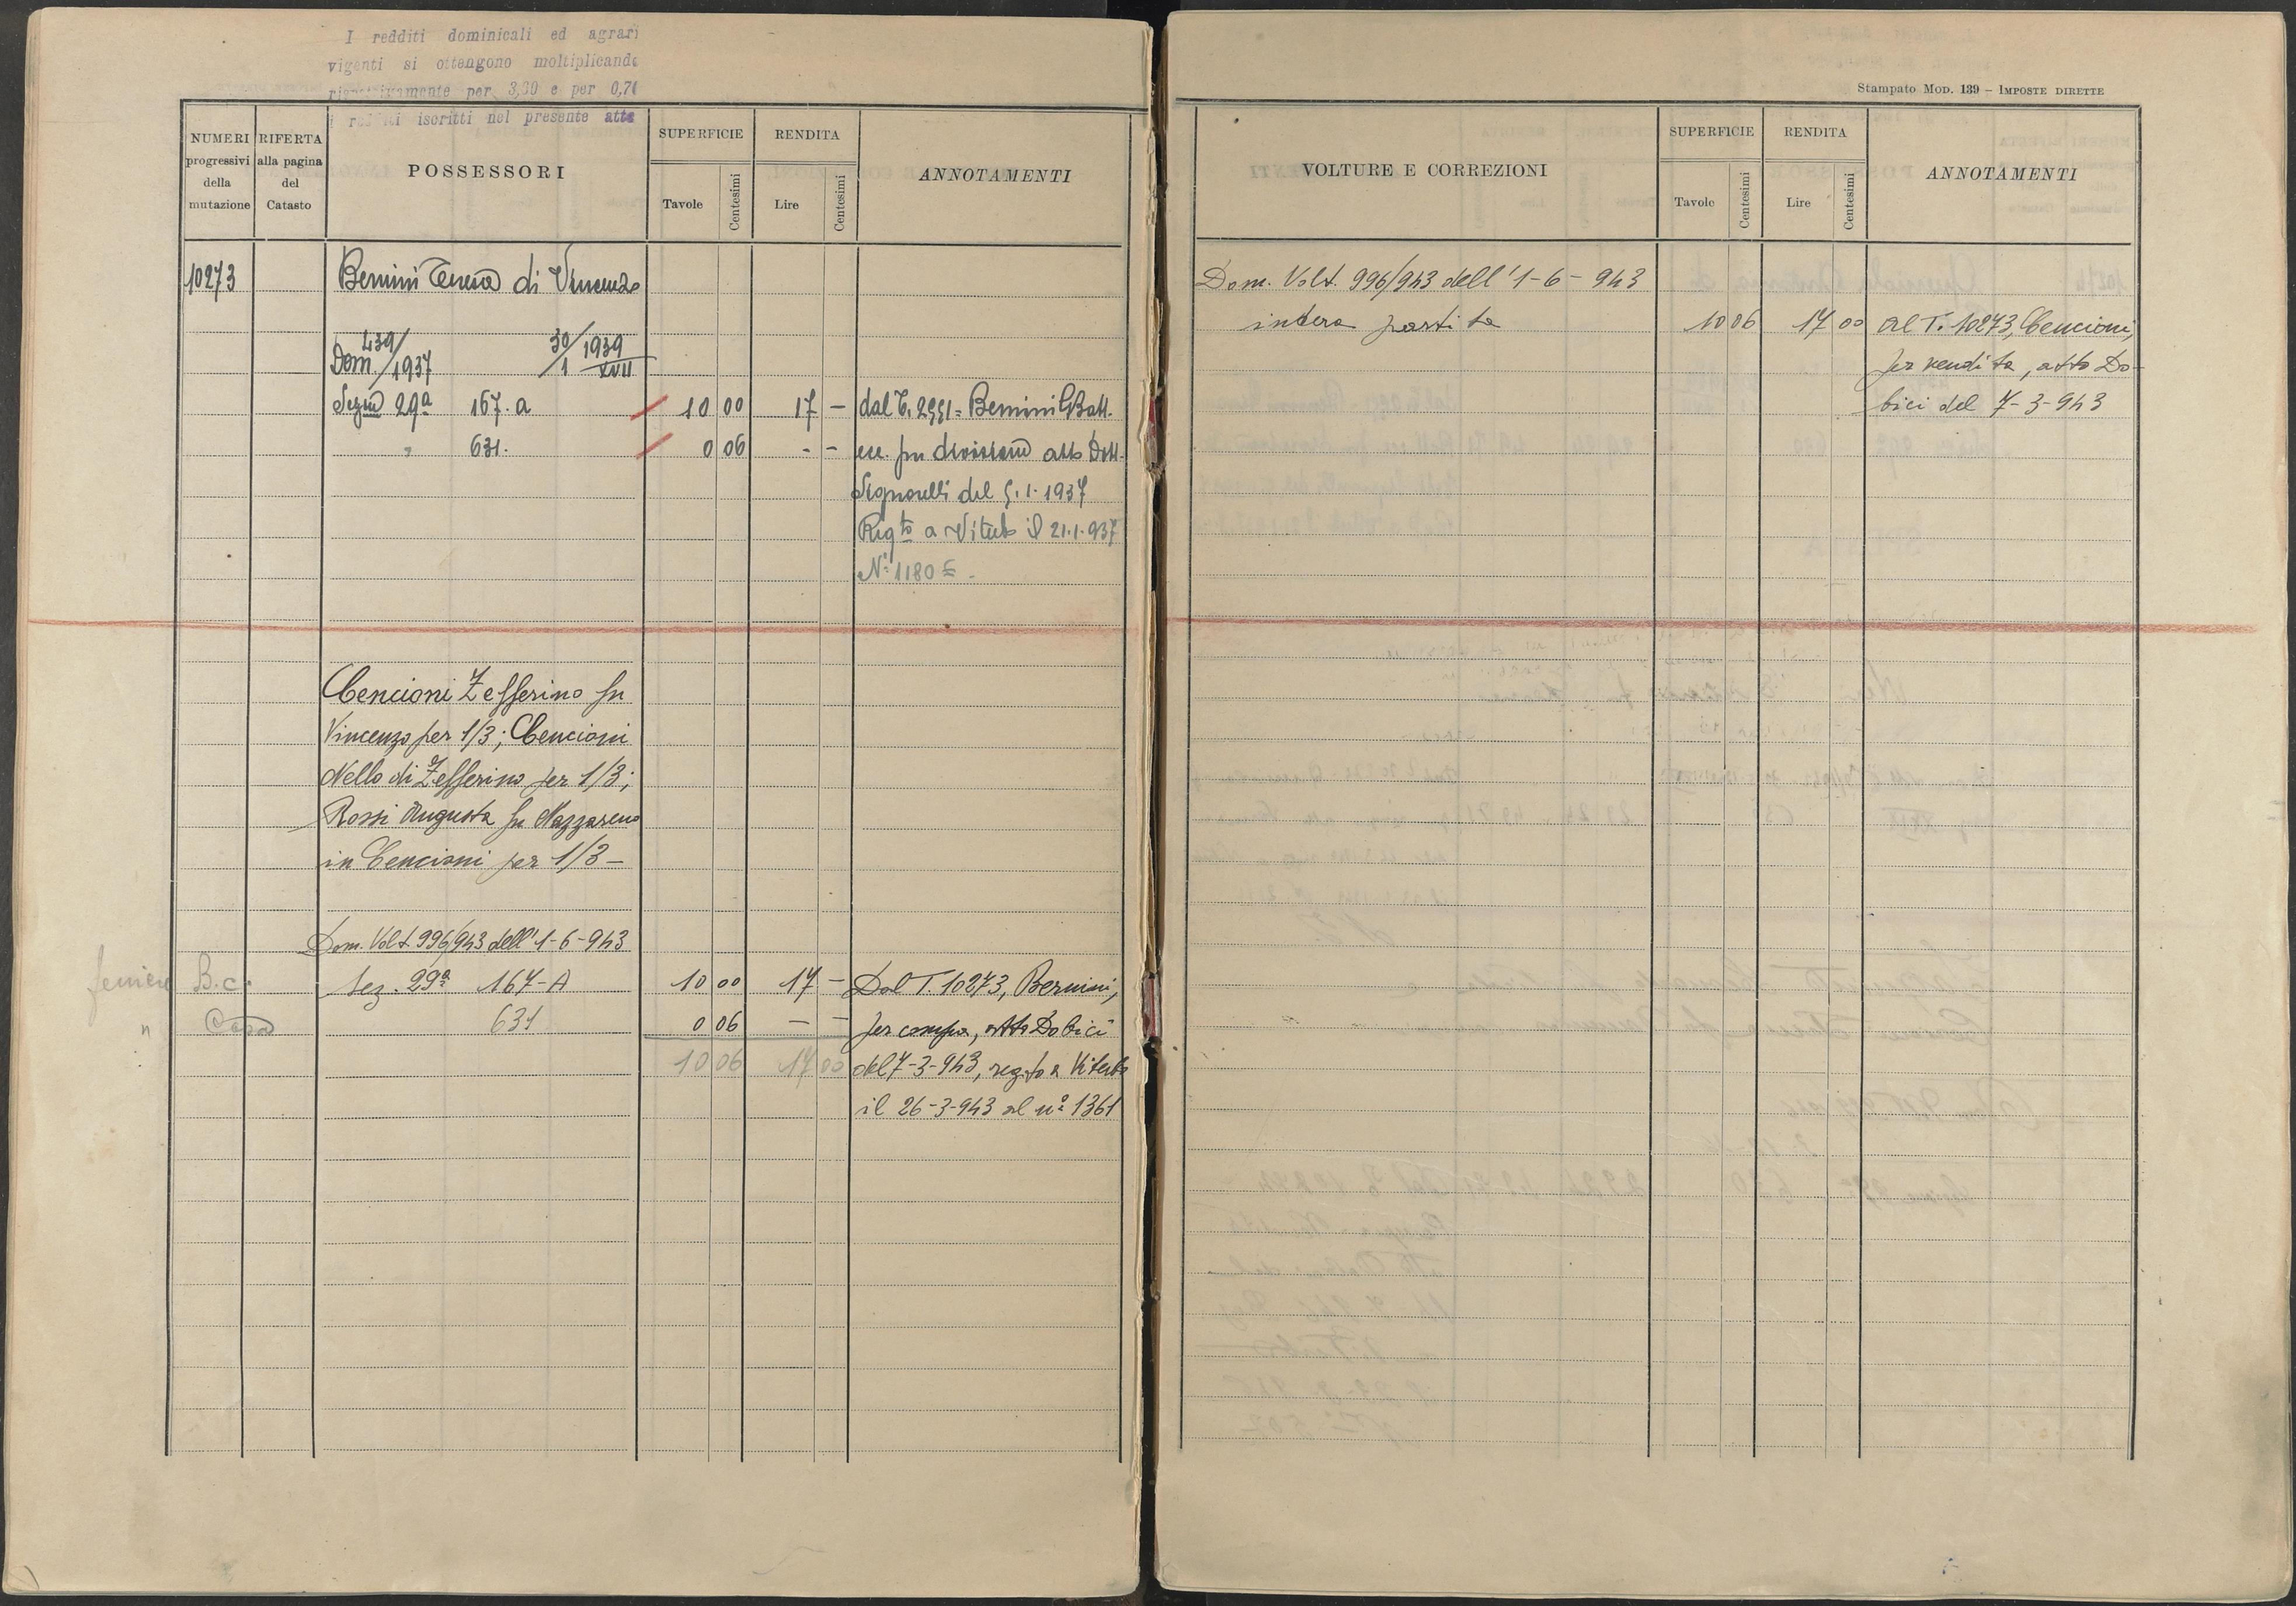 I redditi dominicali ed agrari
vigenti si ottengono moltiplicando
per 3,30 e per 0,70
i iscritti nel presente atto
NUMERI progressivi della mutazione
RIFERTA alla pagina del Catasto
POSSESSORI
SUPERFICIE
Tavole
Centesimi
RENDITA
Lire
Centesimi
ANNOTAMENTI
10273 Bernini Teresa di Vincenzo
Dom. 439/1937 30/1 1939 XVII
Segna 29a 167.a 10 00 17 — dal T. 2991 = Bernini GBatt.
" 631. 0 06 - - ecc. per divisione atto Dott.
Signorelli del 9.1.1937
Regto a Viterbo il 21.1.937
No 1180
Cencioni Zefferino fu
Vincenzo per 1/3; Cencioni
Nello di Zefferino per 1/3;
Rossi Augusta fu Nazzareno
in Cencioni per 1/3 —
Dom. Volt. 996/943 dell'1-6-943
B.c. Sez. 29a 167-A 10 00 17 — Dal T. 10273, Bernini,
" Casa 631 0 06 — — per compra, atto Dobici
10 06 17 00 del 7-3-943, regto a Viterbo
il 26-3-943 al no 1361
Stampato Mod. 139 – Imposte dirette
VOLTURE E CORREZIONI
SUPERFICIE
Tavole
Centesimi
RENDITA
Lire
Centesimi
ANNOTAMENTI
Dom. Volt. 996/943 dell'1-6-943
intera partita 10 06 17 00 Al T. 10273, Cencioni,
per vendita, atto Do-
bici del 7-3-943